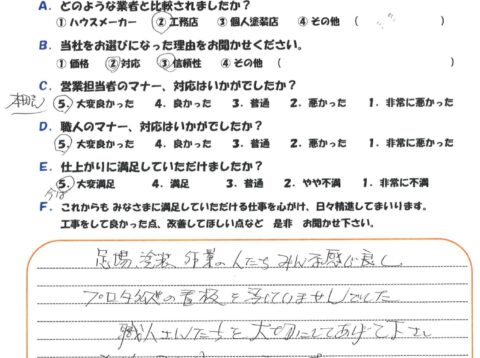 A. どのような業者と比較されましたか?
①ハウスメーカー ②工務店 ③個人塗装店 ④その他 ( )
B. 当社をお選びになった理由をお聞かせください。
①価格 ②対応 ③信頼性 ④その他 ( )
C. 営業担当者のマナー、対応はいかがでしたか?
5. 大変良かった 4. 良かった 3. 普通 2. 悪かった 1. 非常に悪かった
D. 職人のマナー、対応はいかがでしたか?
5. 大変良かった 4. 良かった 3. 普通 2. 悪かった 1. 非常に悪かった
E. 仕上がりに満足していただけましたか?
5. 大変満足 4. 満足 3. 普通 2. やや不満 1. 非常に不満
F. これからも みなさまに満足していただける仕事を心がけ、日々精進してまいります。
工事をして良かった点、改善してほしい点など 是非 お聞かせ下さい。
足場、塗装、作業の人たち みんな感じ良く
プロタイムズの看板を汚していませんでした
職人さんたちを大切にしてあげて下さい